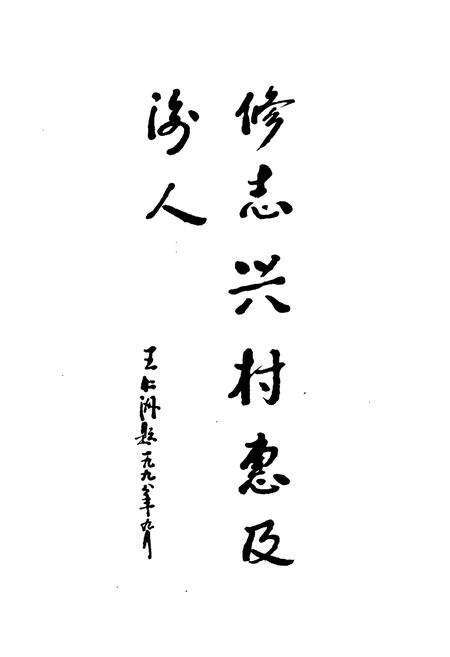 修志兴村惠及
後人
王仁洲题一九九年九月